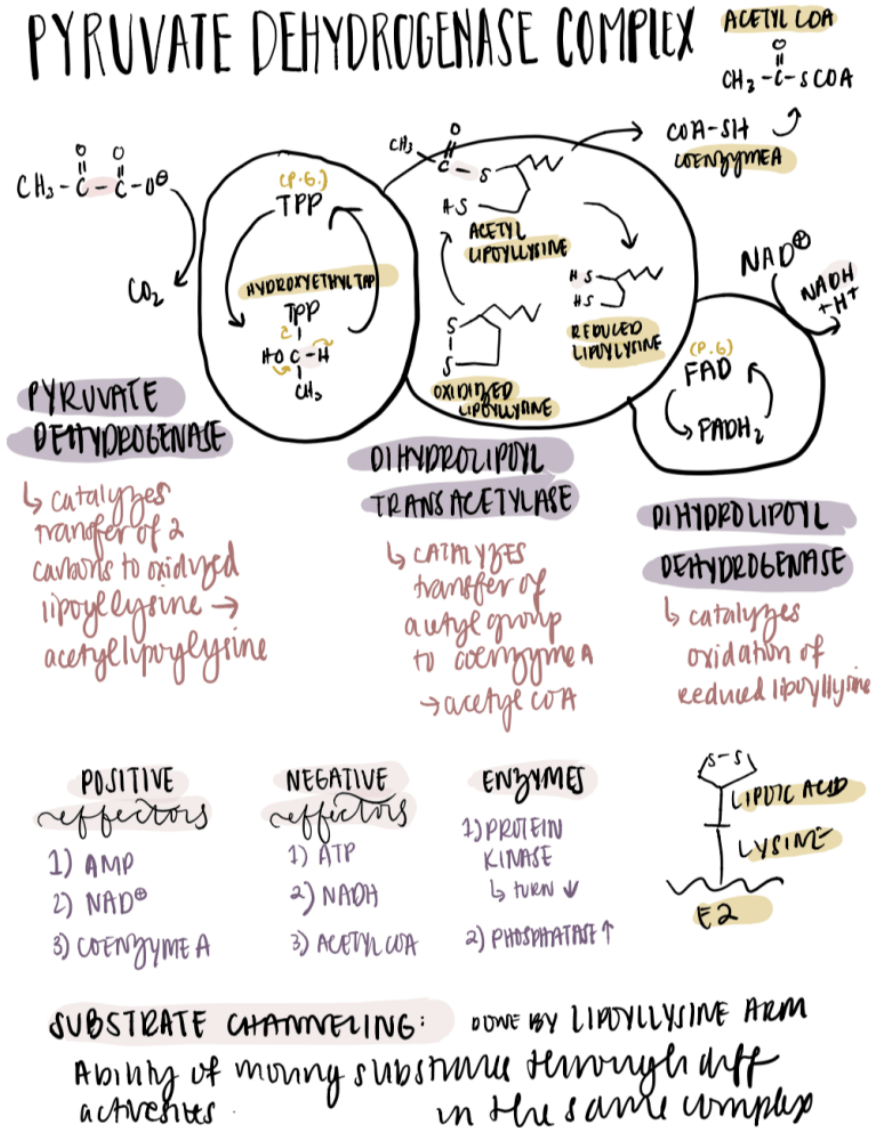 PYRUVATE DEHYDROGENASE COMPLEX
ACETYL COA
O
CH3-C-SCOA
COA-SH
COENZYME A
O O
CH3-C-C-O⊖
CO2
(P.G.)
TPP
HYDROXYETHYL TPP
TPP
HO C-H
CH3
O
CH3 C-S
HS
ACETYL
LIPOYLLYSINE
S
S
OXIDIZED
LIPOYLLYSINE
HS
HS
REDUCED
LIPOYLYSINE
NAD⊕
NADH
+H+
(P.G)
FAD
FADH2
PYRUVATE
DEHYDROGENASE
↳ catalyzes
transfer of 2
carbons to oxidized
lipoyllysine →
acetyllipoylysine
DIHYDROLIPOYL
TRANSACETYLASE
↳ CATALYZES
transfer of
acetyl group
to coenzyme A
→ acetyl COA
DIHYDROLIPOYL
DEHYDROGENASE
↳ catalyzes
oxidation of
reduced lipoyllysine
POSITIVE
effectors
1) AMP
2) NAD⊕
3) COENZYME A
NEGATIVE
effectors
1) ATP
2) NADH
3) ACETYL COA
ENZYMES
1) PROTEIN
KINASE
↳ TURN ↓
2) PHOSPHATASE ↑
S-S
LIPOIC ACID
LYSINE
E2
SUBSTRATE CHANNELING: DONE BY LIPOYLLYSINE ARM
Ability of moving substrate through diff
activesites in the same complex